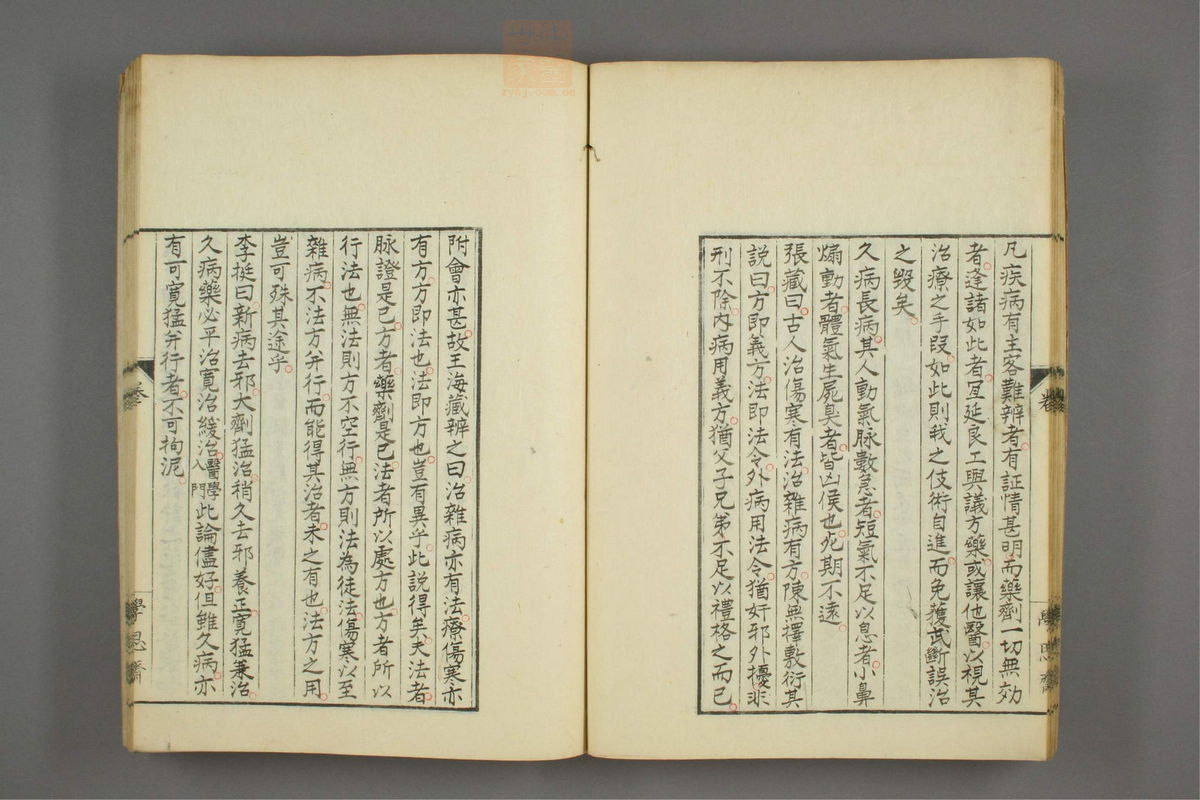 凡疾病有主客難辨者有証情甚明而藥劑一切無効
者逢諸如此者宜延良工與議方藥或讓他醫以視其
治療之手段如此則我之伎術自進而免獲武斷誤治
之毀矣
久病長病其人動氣脉數急者短氣不足以息者小鼻
煽動者體氣生屍臭者皆凶候也死期不遠
張藏曰古人治傷寒有法治雜病有方陳無擇敷衍其
說曰方即義方法即法令外病用法令猶奸邪外擾非
刑不除內病用義方猶父子兄弟不足以禮格之而已
附會亦甚故王海藏辨之曰治雜病亦有法療傷寒亦
有方方即法也法即方也豈有異乎此説得矣夫法者
脉證是已方者藥劑是已法者所以處方也方者所以
行法也無法則方不空行無方則法為徒法傷寒以至
雜病不法方并行而能得其治者未之有也法方之用
豈可殊其途乎
李挺曰新病去邪大劑猛治稍久去邪養正寬猛兼治
久病藥必平治寬治緩治醫學入門此論儘好但雖久病亦
有可寬猛并行者不可拘泥
學思齋
zynj.com.cn